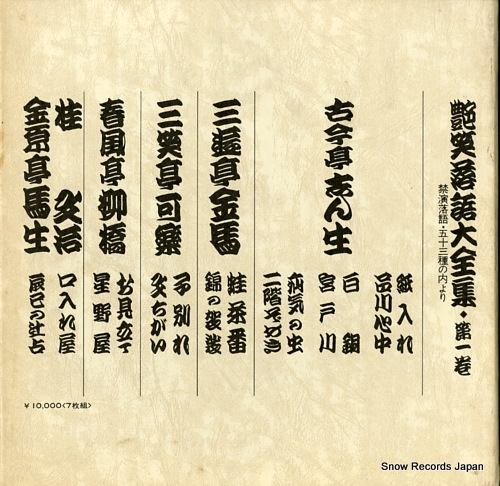 艶笑落語大全集・第一巻
禁演落語・五十三種の内より
紙入れ
品川心中
古今亭志ん生
白銅
宮戸川
疝気の虫
二階ぞめき
三遊亭金馬
蛙茶番
錦の袈裟
三笑亭可楽
子別れ
文ちがい
春風亭柳橋
お見立て
星野屋
桂文治
口入れ屋
金原亭馬生
辰巳の辻占
¥10,000<7枚組>
Snow Records Japan